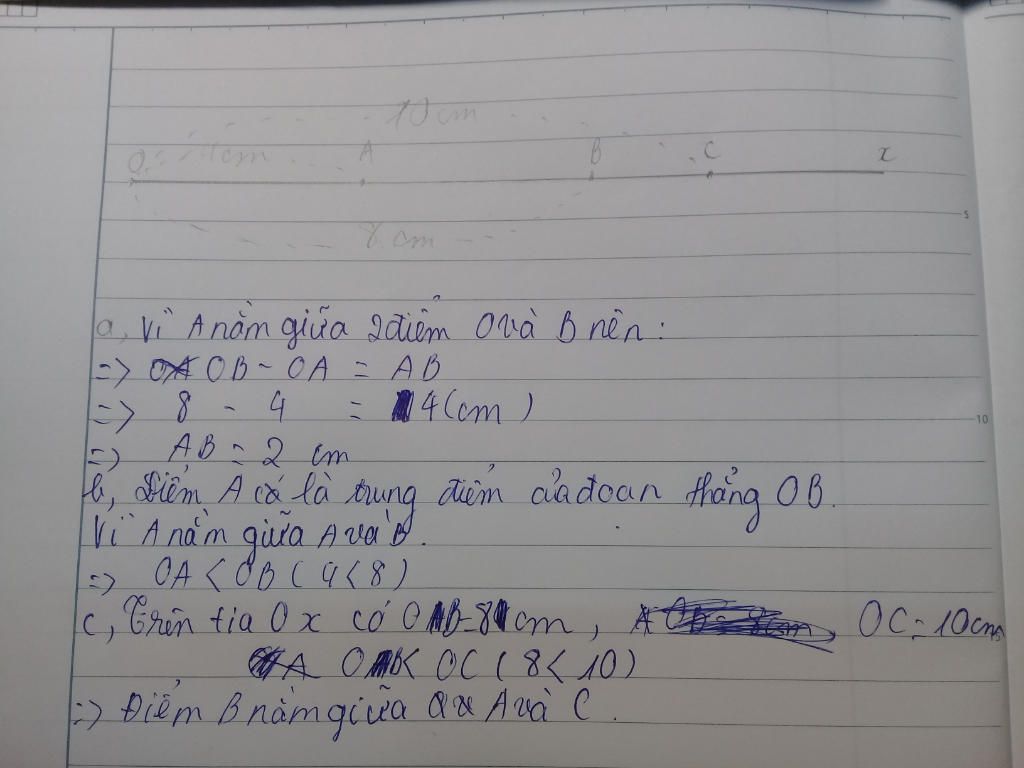 10cm
O 4cm A B C x
8 cm
a, Vì A nằm giữa 2 điểm O và B nên:
=> OB - OA = AB
=> 8 - 4 = 4(cm)
=> AB = 2 cm
b, Điểm A có là trung điểm của đoan thẳng OB.
Vì A nằm giữa A và B.
=> OA < OB (4 < 8)
c, Trên tia Ox có OB = 8cm, OC = 10cm
OB < OC (8 < 10)
=> Điểm B nằm giữa A và C.
5
10